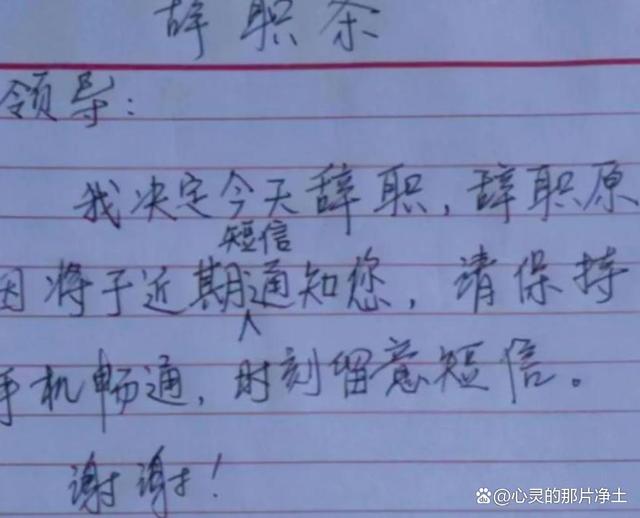 辞职条
领导：
我决定今天辞职，辞职原
因将于近期短信通知您，请保持
手机畅通，时刻留意短信。
谢谢！
心灵的那片净土